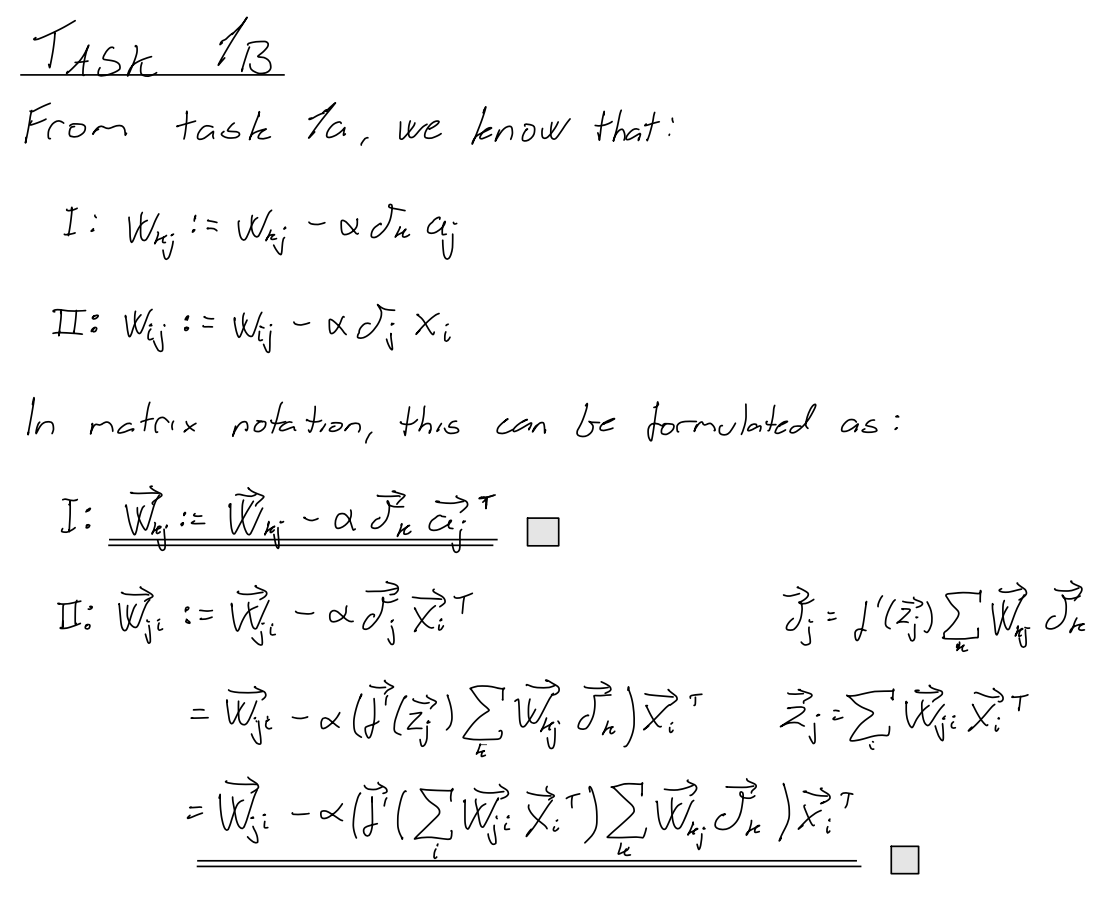 TASK 1B
From task 1a, we know that:
I: w_{kj} := w_{kj} - α δ_k a_j
II: w_{ij} := w_{ij} - α δ_j x_i
In matrix notation, this can be formulated as:
I: \vec{W}_{kj} := \vec{W}_{kj} - α \vec{δ}_k \vec{a}_j^T
II: \vec{W}_{ji} := \vec{W}_{ji} - α \vec{δ}_j \vec{x}_i^T \vec{δ}_j = f'(\vec{z}_j) \sum_k \vec{W}_{kj} \vec{δ}_k
= \vec{W}_{ji} - α (\vec{f}'(\vec{z}_j) \sum_k \vec{W}_{kj} \vec{δ}_k) \vec{x}_i^T \vec{z}_j = \sum_i \vec{W}_{ji} \vec{x}_i^T
= \vec{W}_{ji} - α (\vec{f}'(\sum_i \vec{W}_{ji} \vec{x}_i^T) \sum_k \vec{W}_{kj} \vec{δ}_k) \vec{x}_i^T